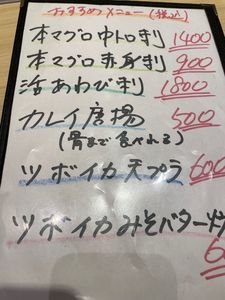 おすすめメニュー(税込)
本マグロ中トロ刺 1400
本マグロ赤身刺 900
活あわび刺 1800
カレイ唐揚 500
(骨まで食べれる)
ツボイカ天プラ 600
ツボイカみそバター
6